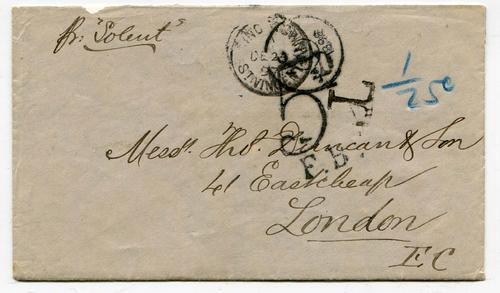 pr. "Solent"
1/250
L
Messrs. Thos. Duncan & Son
41 Eastcheap
London
E C